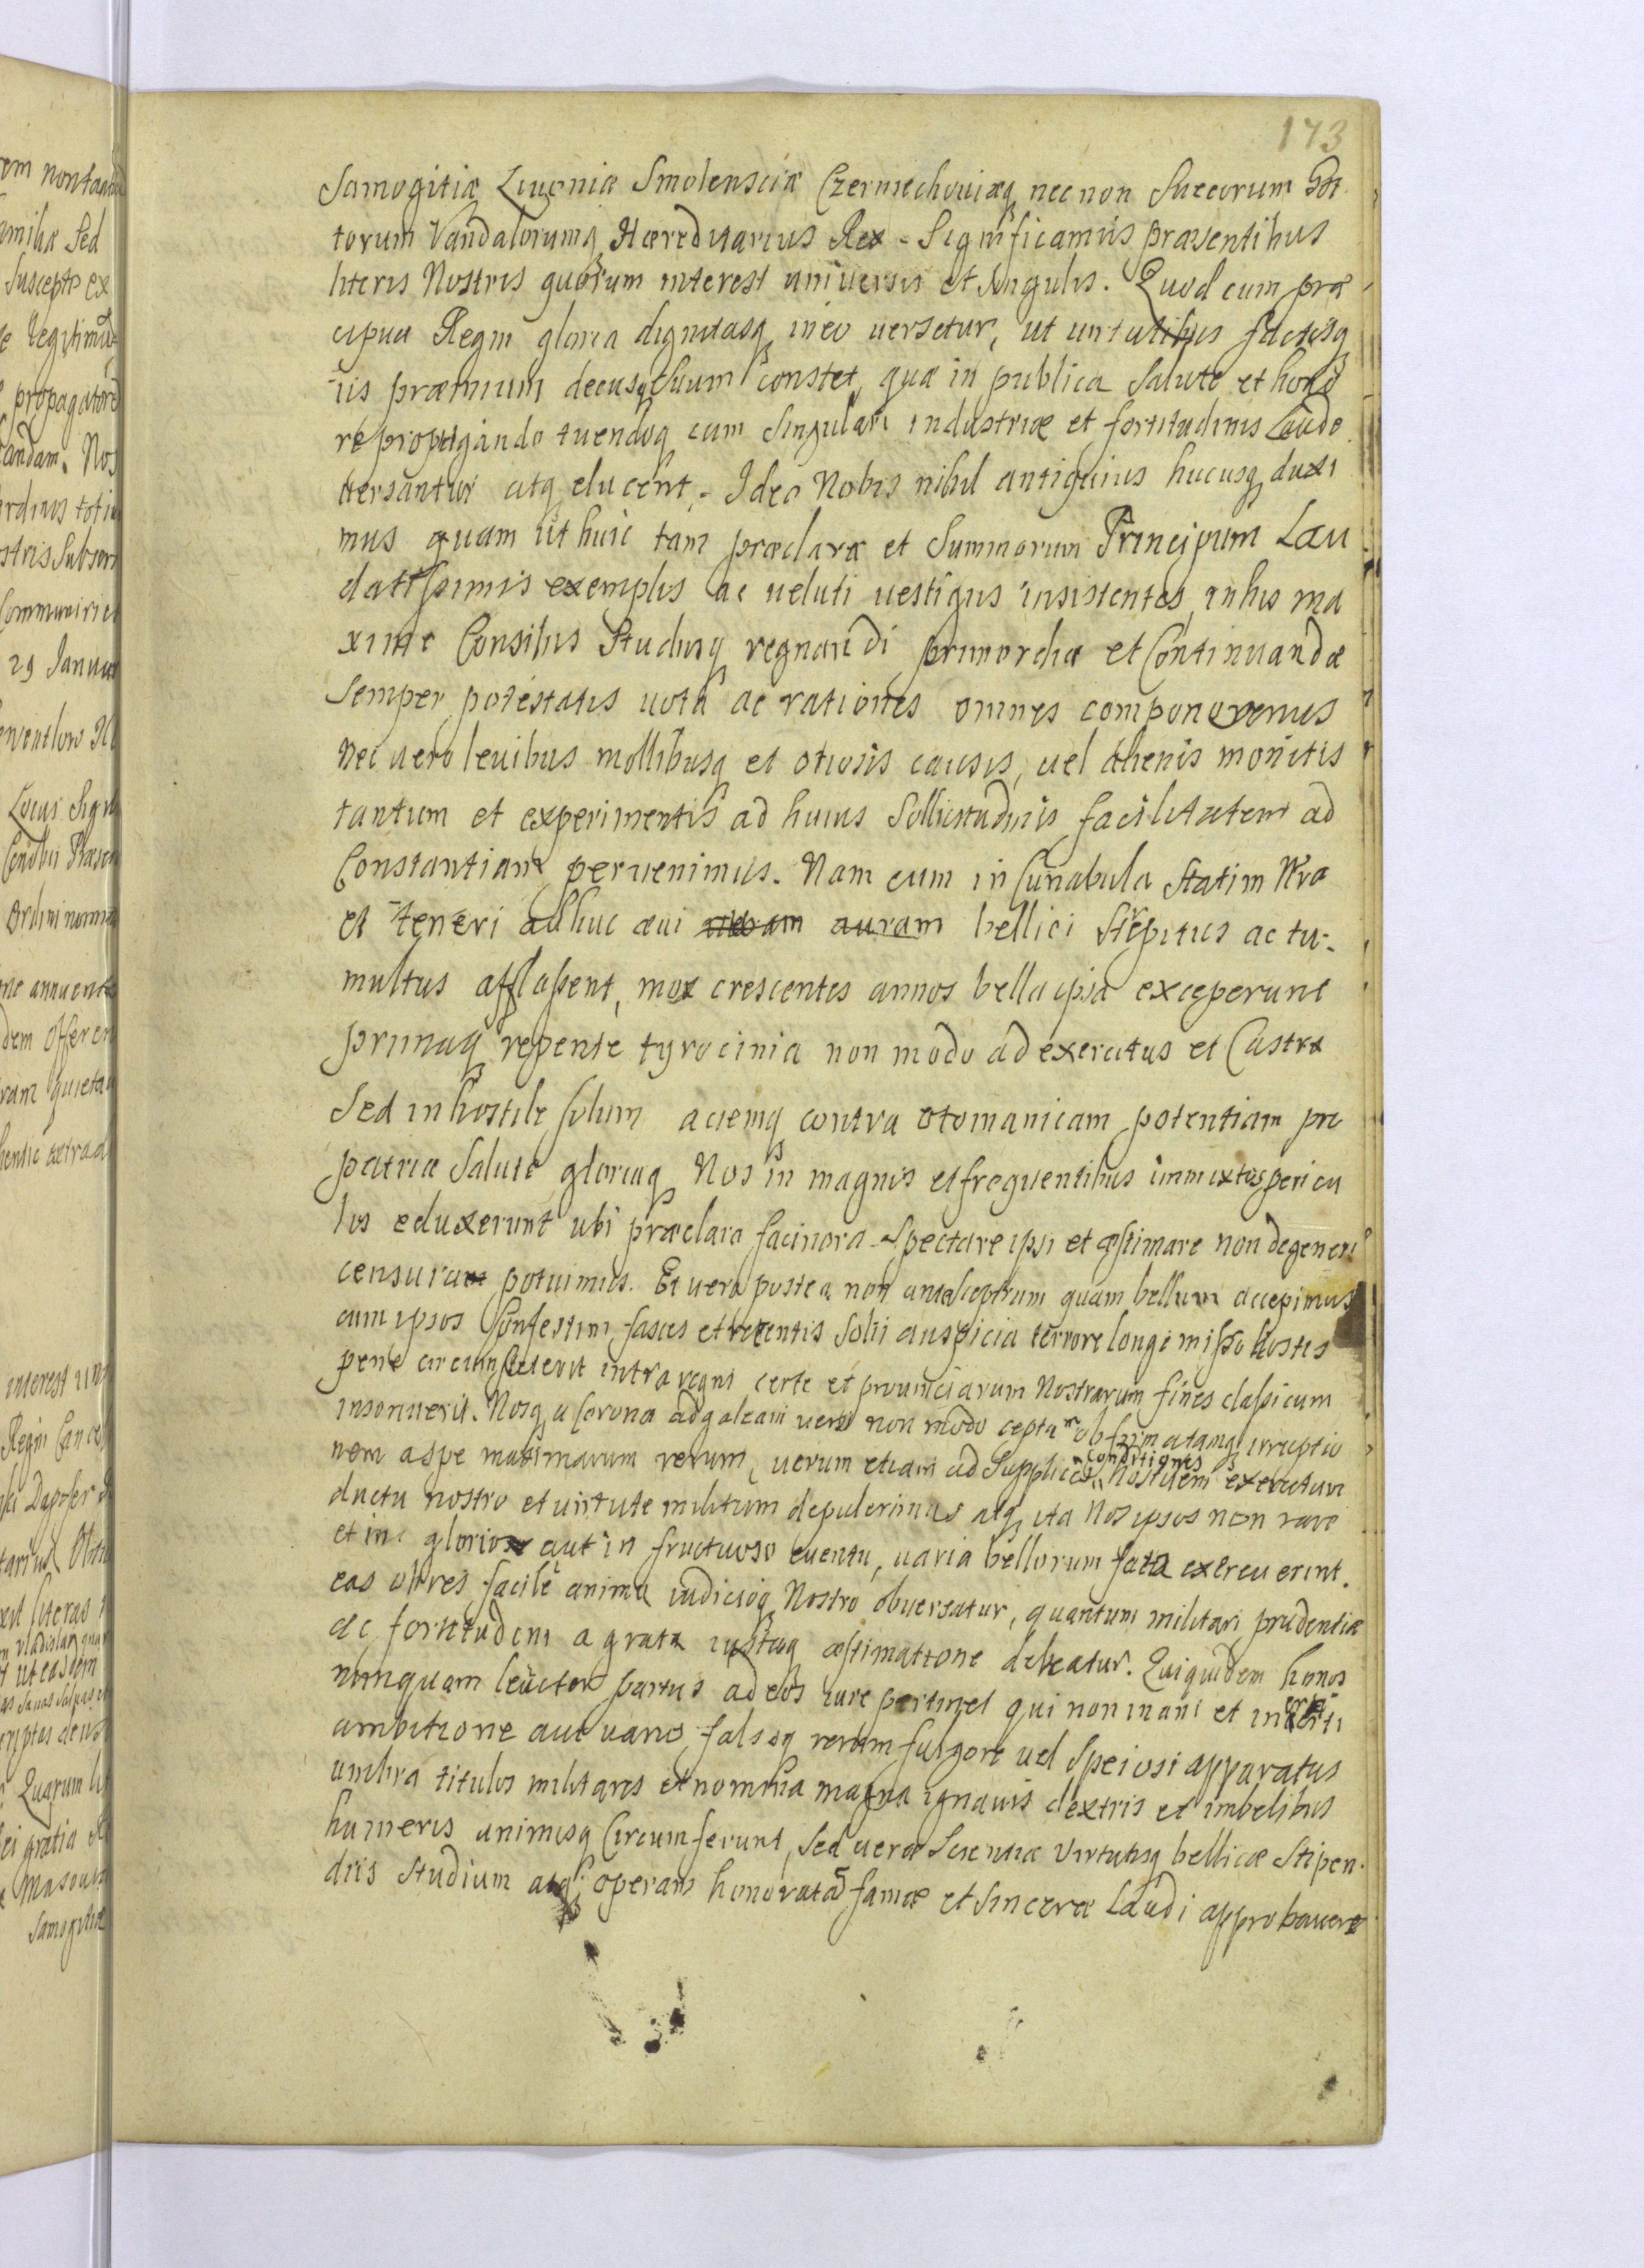 173
Samogitiæ Liuoniæ Smolensciæ Czerniechouiæq nec non Suecorum Got
torum Vandalorumq Hæreditarius Rex - Significamus præsentibus
literis Nostris quorum interest uniuersis et singulis. Quod cum præ
cipua Regni gloria dignitasq in eo uersetur, ut uirtutibus factisq
iis præmium decusq suum constet, quæ in publica salute et hono
re propugando tuendoq cum singulari industriæ et fortitudinis laude
uersantur atq elucent. Ideo Nobis nihil antiquius hucusq duxi
mus quam ut huic tam præclaræ et Summorum Principum Lau
datissimis exemplis ac ueluti uestigiis insistentes, in his ma
xime Consiliis Studiisq regnandi primordia et Continuandæ
Semper potestatis uota ac rationes omnes componeremus
Nec uero leuibus mollibusq et otiosis causis, uel alienis monitis
tantum et experimentis ad huius Sollicitudinis facilitatem ad
Constantiam peruenimus. Nam cum in Cunabula statim Nra
et teneri adhuc æui auram bellici strepitus ac tu-
multus afflassent, mox crescentes annos bella ipsa exceperunt
primaq repente tyrocinia non modo ad exercitus et Castra
Sed in hostile solum aciemq contra otomanicam potentiam pro
patriæ Salute gloriaq Nos in magnis et frequentibus immixtos pericu
lis eduxerunt ubi præclara facinora spectare ipsi et æstimare non degeneri
censura potuimus. Et uero postea non ante sceptrum quam bellum accepimus
cum ipsos Confestim fasces et recentis Solii auspicia terrore longe misso hostis
pene circumsteterit intra regni certe et prouinciarum Nostrarum fines classicum
insonuerit. Nosq a Corona ad galeam uersi non modo ceptam obfirmatamq irruptio
nem a spe maximarum rerum, uerum etiam ad Supplices conditiones hostilem exercitum
ductu nostro et uirtute militum depulerimus atq ita Nos ipsos non raro
et in glorioso aut in fructuoso euentu, uaria bellorum fata exercuerint.
eas ob res facile animo iudicioq Nostro obuersatur, quantum militari prudentiæ
ac fortitudini a grata iustaq æstimatione debeatur. Qui quidem honos
nunquam leuiter partus ad eos iure pertinet qui non inani et inerti
ambitione aut uano falsoq rerum fulgore uel Speciosi apparatus
umbra titulos militares et nomina magna ignauis dextris et imbelibus
humeris animisq Circumferunt, Sed ueræ Scientiæ Virtutisq bellicæ Stipen-
diis studium atq operam honoratæ famæ et Sinceræ Laudi approbauere